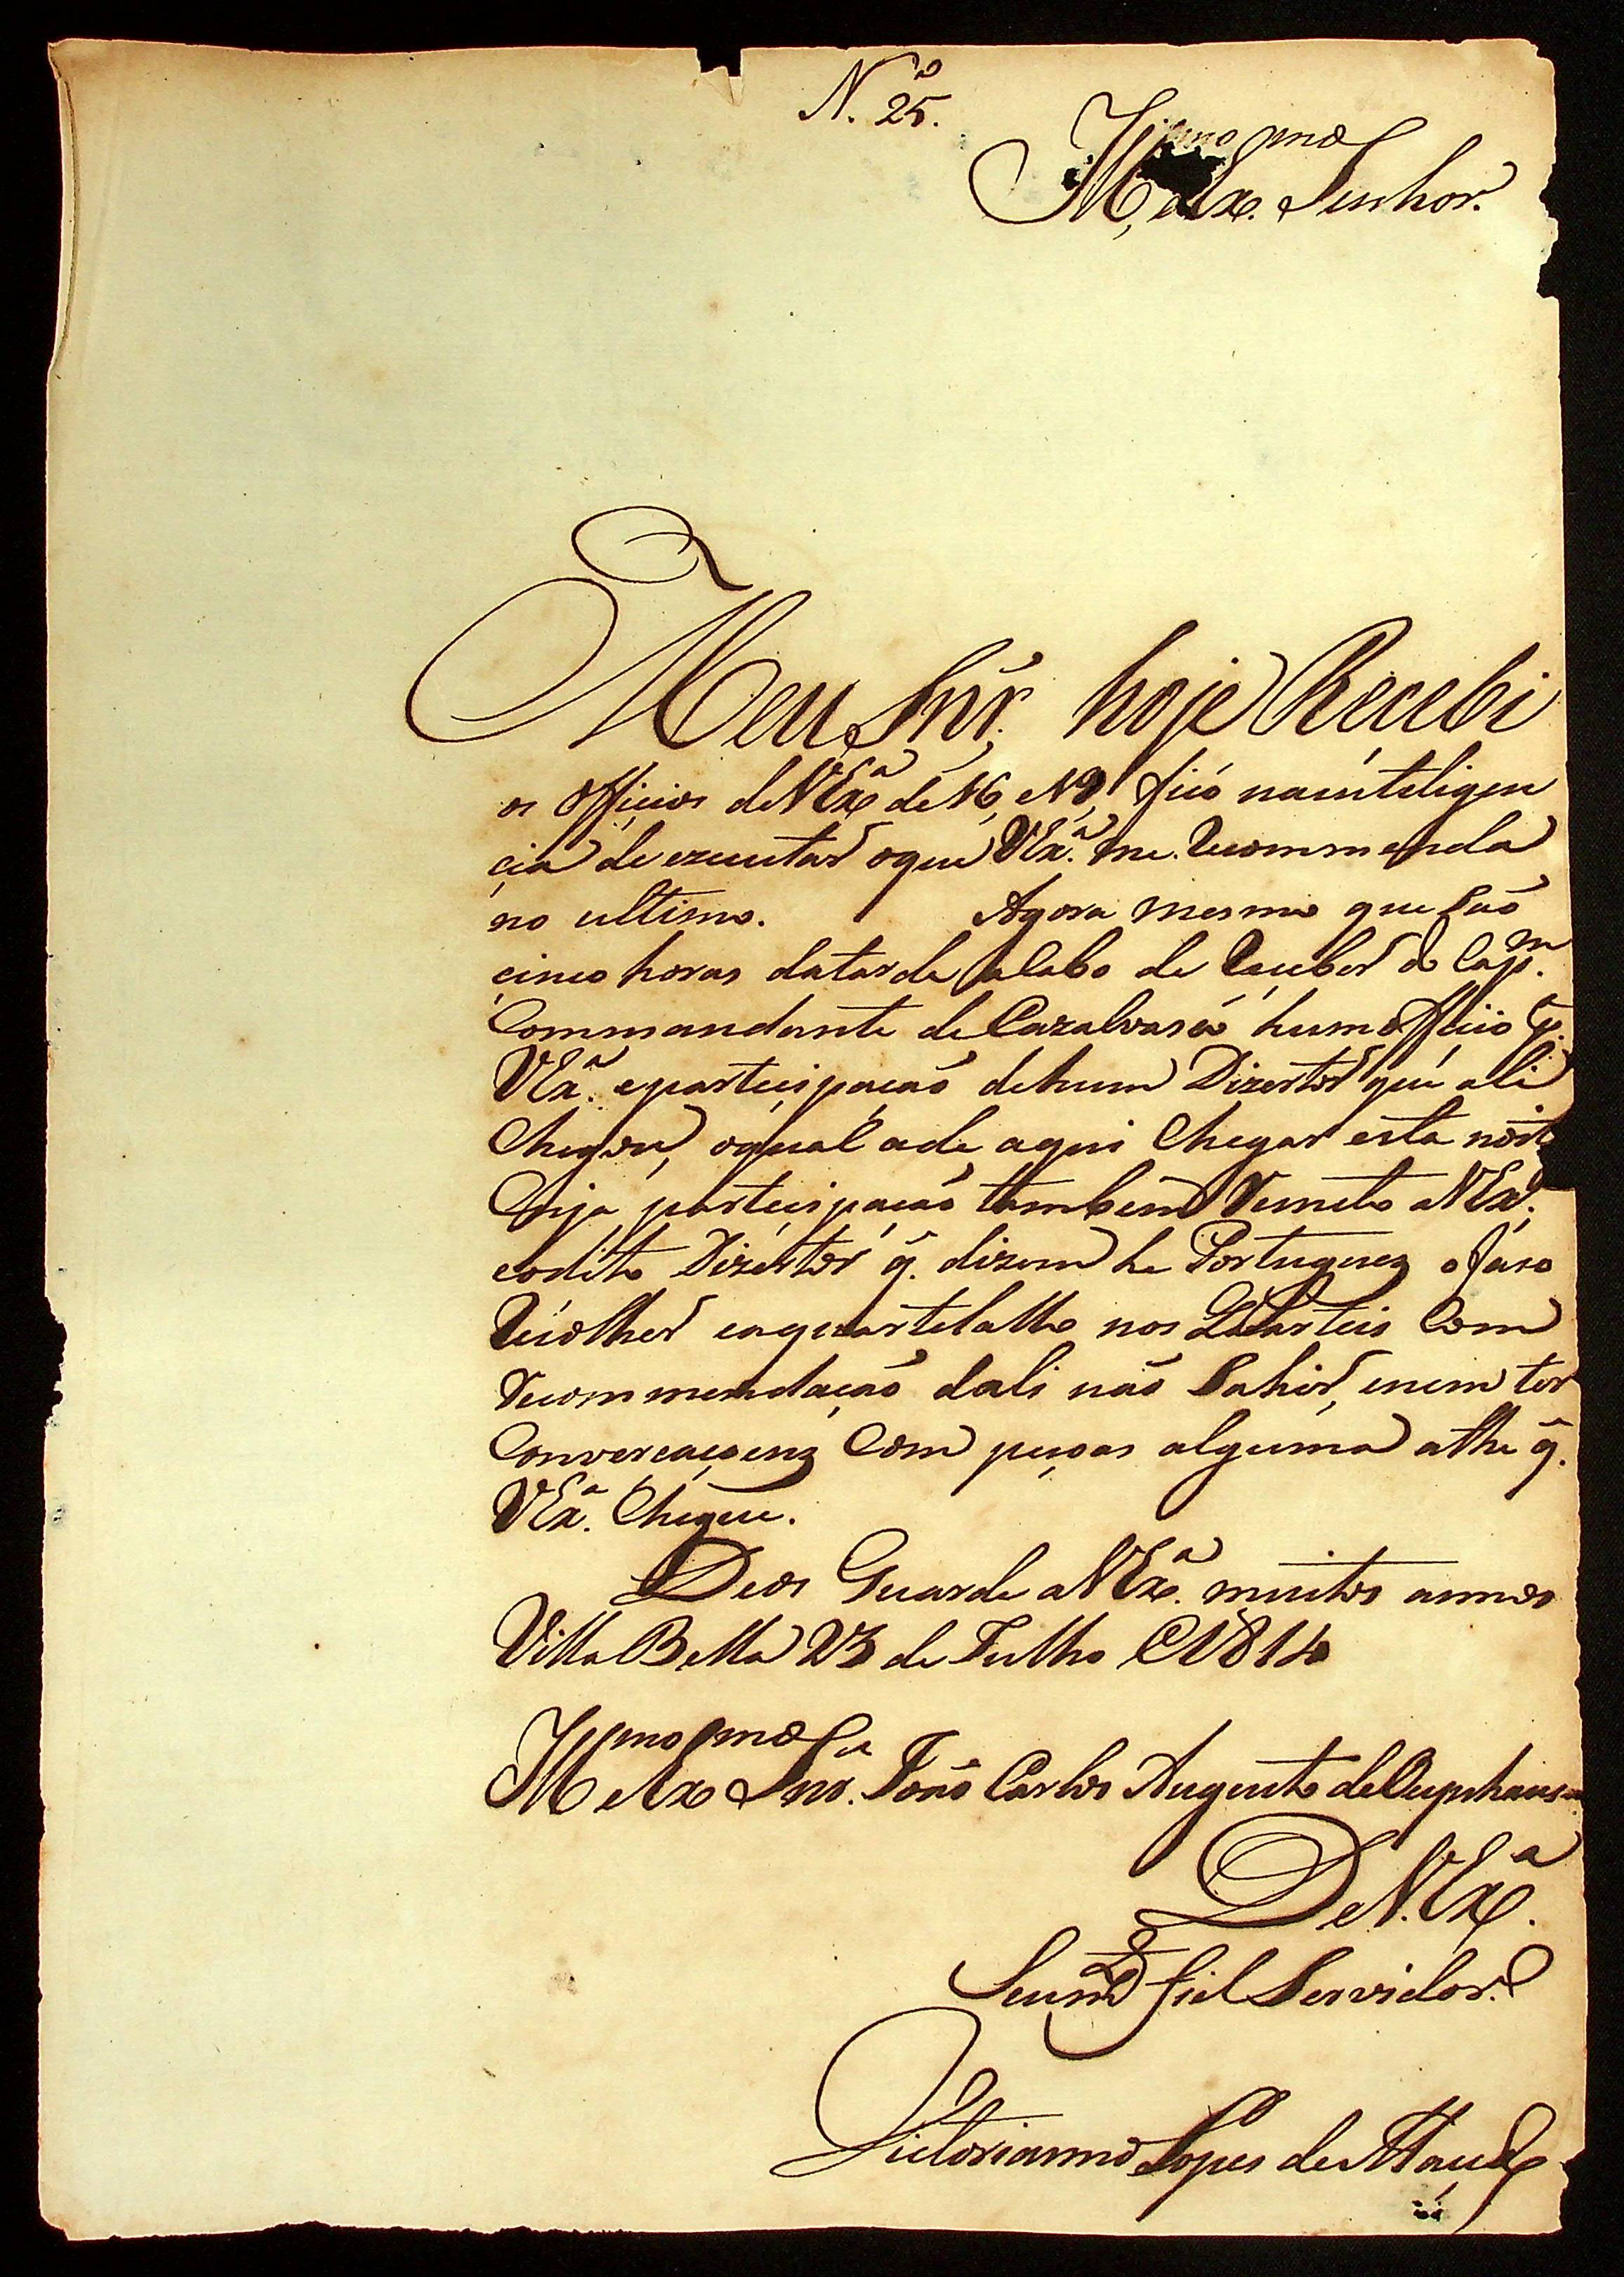 N.º 25.
Ill.mo e Ex.mo Senhor.
Meu Snr̃. hoje Recebi
os Officios de VEx.ª de 16, e 19, fico naintiligen
cia de exzecutar oque VEx.ª me. Recommenda
no ultimo. Agora mesmo que saõ
cinco horas datarde acabo de Receber do Cap.m
Commandante de Cazalvasco hum Officio p.ª
VEx.ª eparticipaçaõ dehum Dizertor que ali
Chegou, oqual ade aqui Chegar esta noit
Cuja participaçaõ tambem Remeto aVEx.ª
eodito Dizertor q̃. dizem he Portuguez ofaso
Recolher eaquartelallo nos Quarteis Com
recommendaçaõ dali naõ Sahir, enem ter
Convercaçoens Com peçoas alguma athe q̃.
VEx.ª Chegue.
Deos Guarde aVEx.ª muitos annos
Villa Bella 23 de Julho 1814
Ill.mo e Ex.mo Snr. Joaõ Carlos Augusto deOeynhausen
De V.Ex.ª
Seu fiel Servidor.
Victorianno Lopes de Maced.º